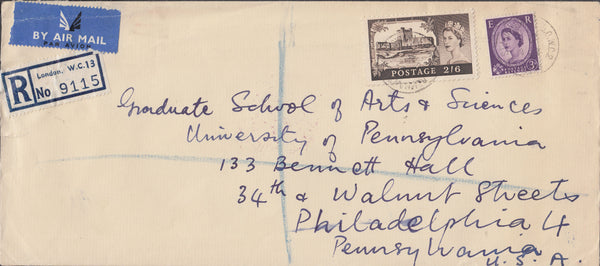 BY AIR MAIL
PAR AVION
R London, W.C.13
No 9115
POSTAGE 2/6
E R
Graduate School of Arts & Sciences
University of Pennsylvania
133 Bennett Hall
34th & Walnut Streets
Philadelphia 4
Pennsylvania
U.S.A.